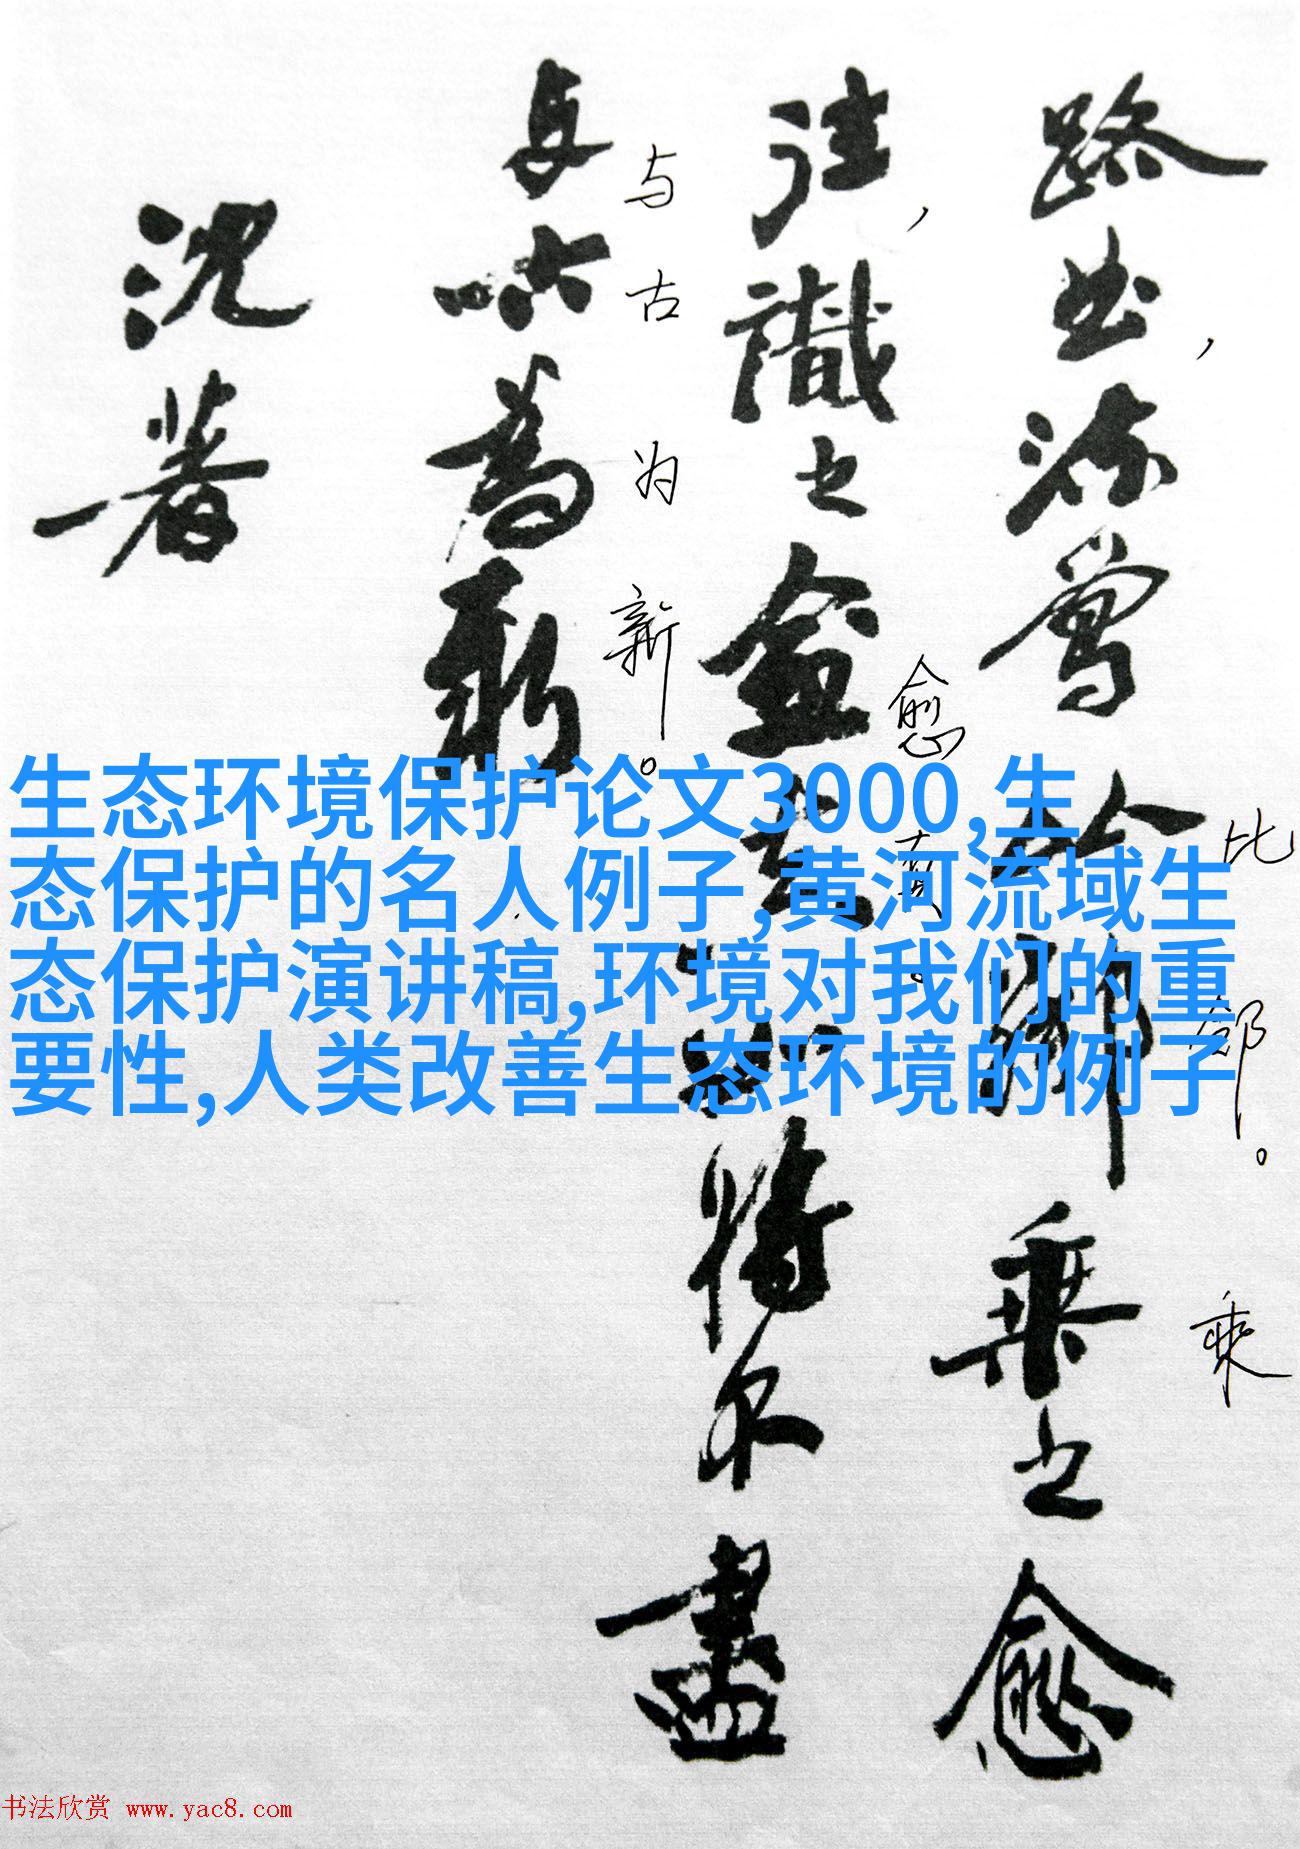 路出,流莺
比邻。乘之愈
往,识之愈真。
将不盡
与古为新。
沈著
生态环境保护论文3000,生
态保护的名人例子,黄河流域生
态保护演讲稿,环境对我们的重
要性,人类改善生态环境的例子
书法欣赏 www.yac8.com